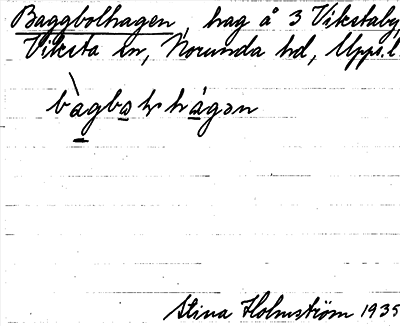 Baggbolhagen, hag å 3 Vikstaby,
Viksta sn, Norunda hd, Upps.l.
bàgboɫhágən
Stina Holmström 1935